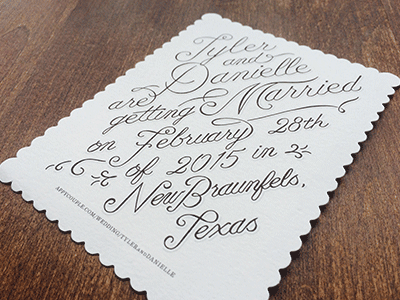 Tyler
and
Danielle
are
getting Married
on February 28th
of 2015 in
New Braunfels,
Texas
APPYCOUPLE.COM/WEDDING/TYLERandDANIELLE